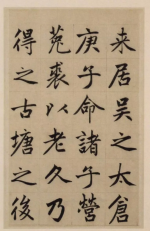 来居吴之太倉
庚午命諸子營
菟裘以老久乃
得之古塘之後